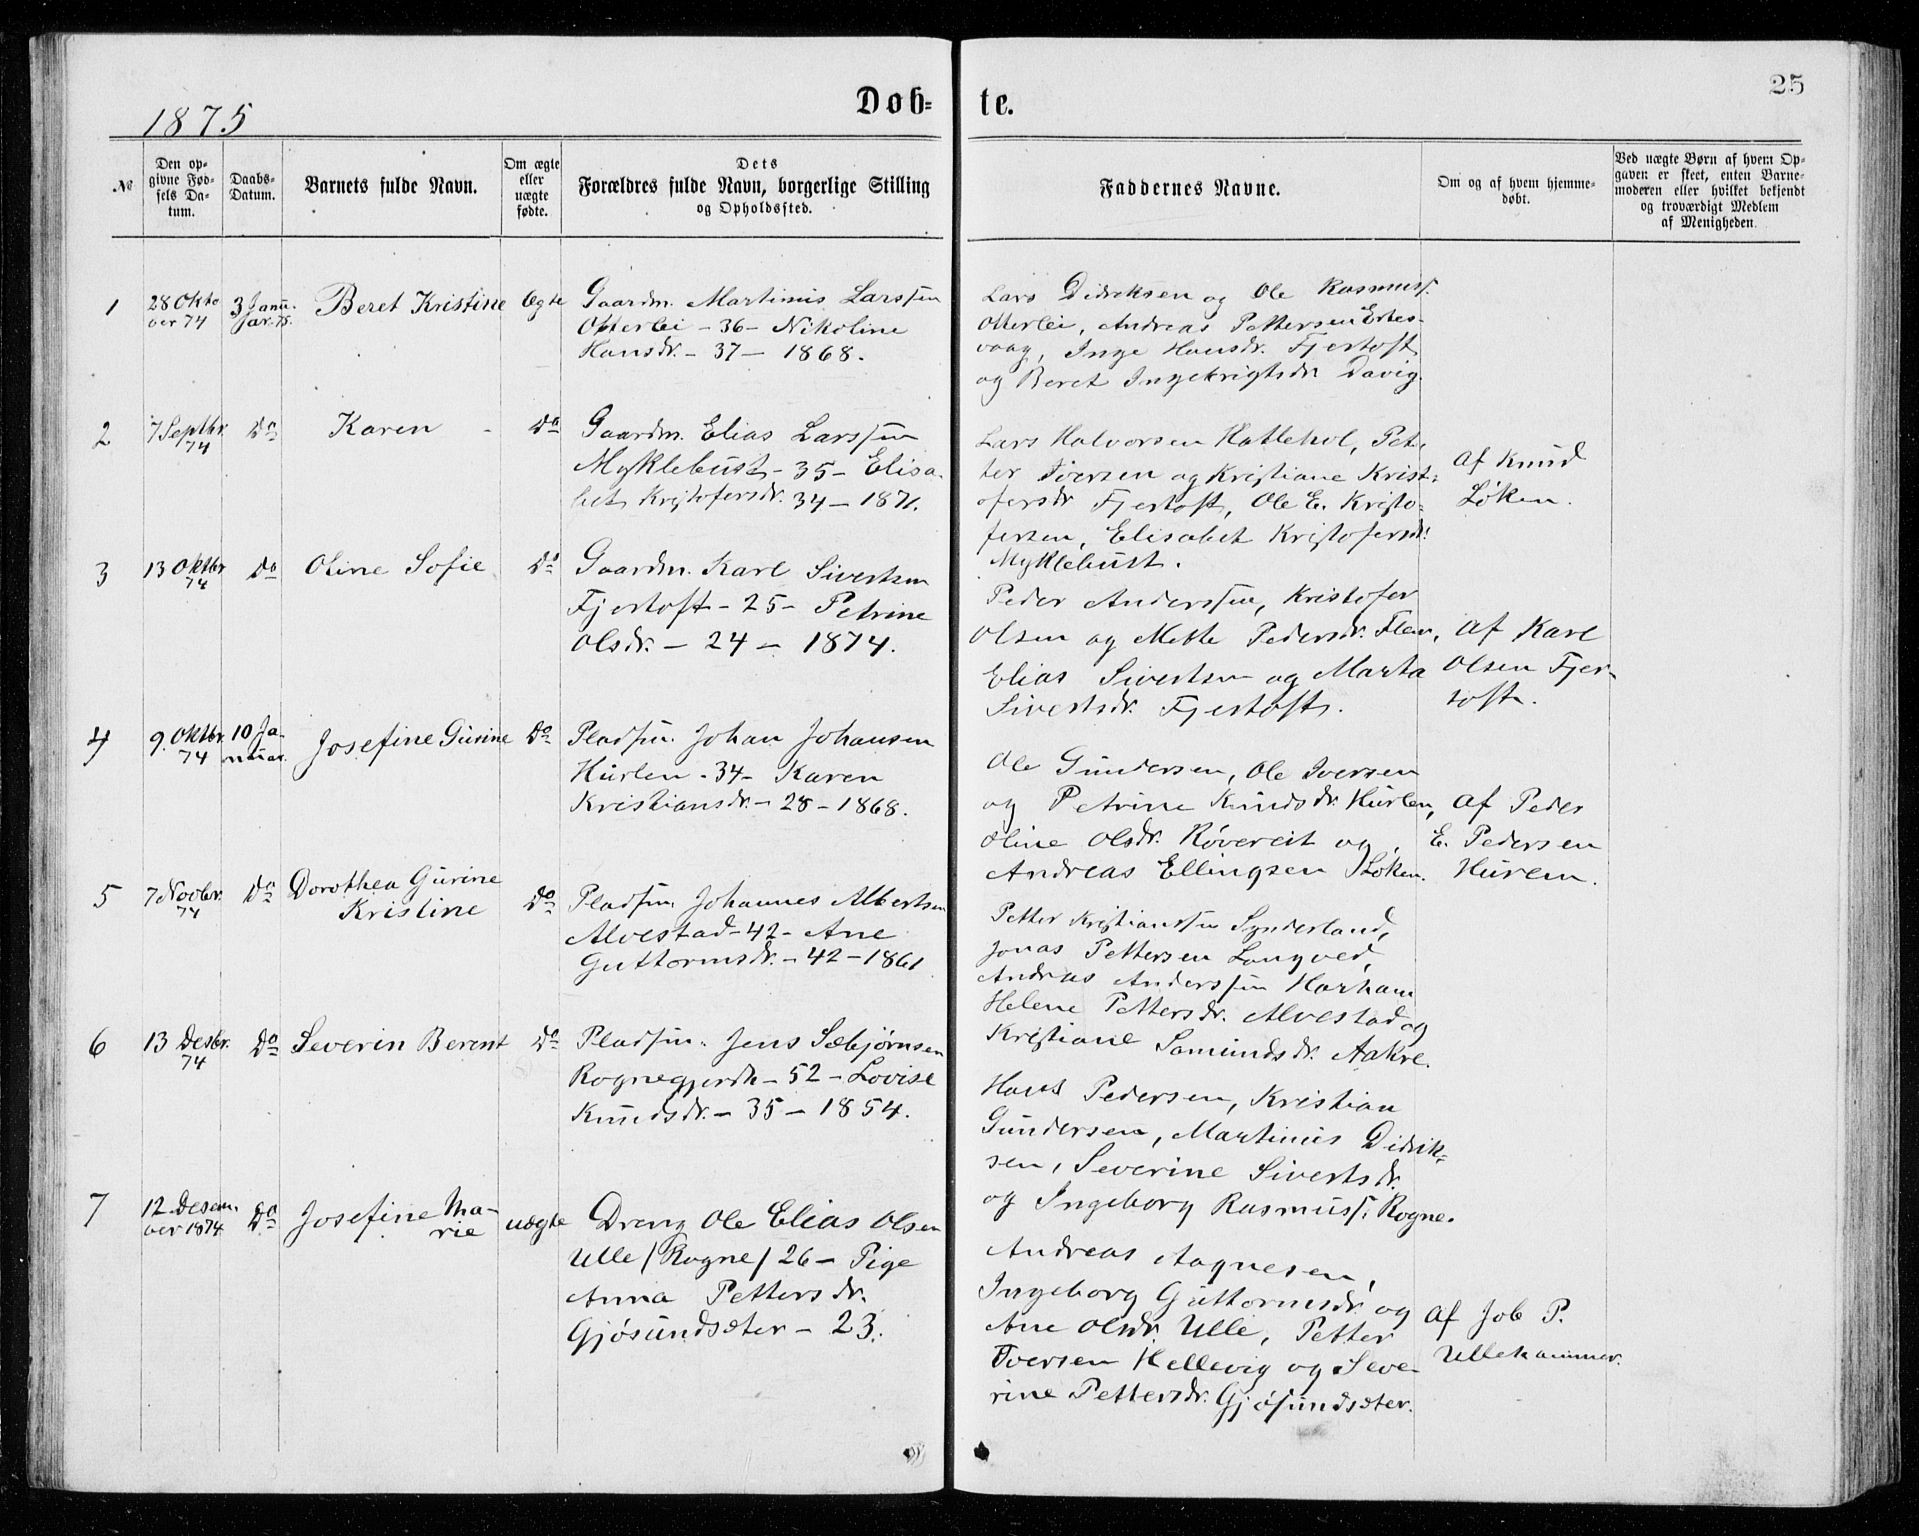 25
1875
Døb-
te.
№
Den op-
givne Fød-
sels Da-
tum.
Daabs-
Datum.
Barnets fulde Navn.
Om ægte
eller
uægte
fødte.
Dets
Forældres fulde Navn, borgerlige Stilling
og Opholdssted.
Faddernes Navne.
Om og af hvem hjemme-
døbt.
Ved uægte Børn af hvem Op-
gaven er skeet, enten Barne-
moderen eller hvilket bekjendt
og troværdigt Medlem
af Menigheden.
1
28 Okto
ver 74
3 Janu-
ar. 75.
Beret Kristine
Ægte
Gaardm. Martinus Larssen
Otterlei - 36 - Nikoline
Hansdr. - 37 - 1868.
Lars Didriksen og Ole Rasmuss.
Otterlei, Andreas Pettersen Ertes-
vaag, Inge Hansdr. Fjertoft
og Beret Ingebrigtsdr. Davig.
2
7 Septbr.
74
Do
Karen
Do
Gaardm. Elias Larssen
Myklebust - 35 - Elisa-
bet Kristofersdr. 34 - 1871.
Lars Halvorsen Hatlehol, Pet-
ter Iversen og Kristiane Krist-
ofersdr Fjertoft, Ole E. Kristo-
fersen, Elisabet Kristofersdr.
Myklebust.
Af Knud
Løken.
3
13 Oktbr
74
Do
Oline Sofie
Do
Gaardm. Karl Sivertsen
Fjertoft - 25 - Petrine
Olsdr. - 24 - 1874.
Peder Anderssen, Kristofer
Olsen og Mette Pedersdr. Flem,
Elias Sivertsen og Marta
Sivertsdr. Fjertoft.
Af Karl
Olsen Fjer-
toft.
4
9. Oktbr.
74
10 Ja-
nuar.
Josefine Gurine
Do
Pladsm. Johan Johansen
Hurlen - 34 - Karen
Kristiansdr. - 28 - 1868.
Ole Gundersen, Ole Iversen
og Petrine Knudsdr. Hurlen,
Oline Olsdr. Røvereit og
Andreas Ellingsen Løken.
Af Peder
E. Pedersen
Hurlen.
5
7 Novbr.
74
Do
Dorothea Gurine
Kristine
Do
Pladsm. Johannes Albertsen
Alvestad - 42 - Ane
Guttormsdr. - 42 - 1861
Petter Kristianssen Synderland,
Jonas Pettersen Longved,
Andreas Anderssen Harham
Helene Pettersdr. Alvestad og
Kristiane Samundsdr. Aakre.
6
13 Desbr.
74
Do
Severin Berent
Do
Pladsm. Jens Sæbjørnsen
Rognegjerde - 52 - Lovise
Knudsdr. - 35 - 1854.
Hans Pedersen, Kristian
Gundersen, Martinus Didrik-
sen, Severine Sivertsdr.
og Ingeborg Rasmuss. Rogne.
7
12 Desem-
ber 1874
Do
Josefine Ma-
rie
uægte
Dreng Ole Elias Olsen
Ulle / Rogne / 26 - Pige
Anna Pettersdr.
Gjøsundsæter - 23.
Andreas Aagnesen,
Ingeborg Guttormsdr. og
Ane Olsdr. Ulle, Petter
Iversen Hellevig og Seve-
rine Pettersdr. Gjøsundsæter.
Af Job P.
Ullehammer.